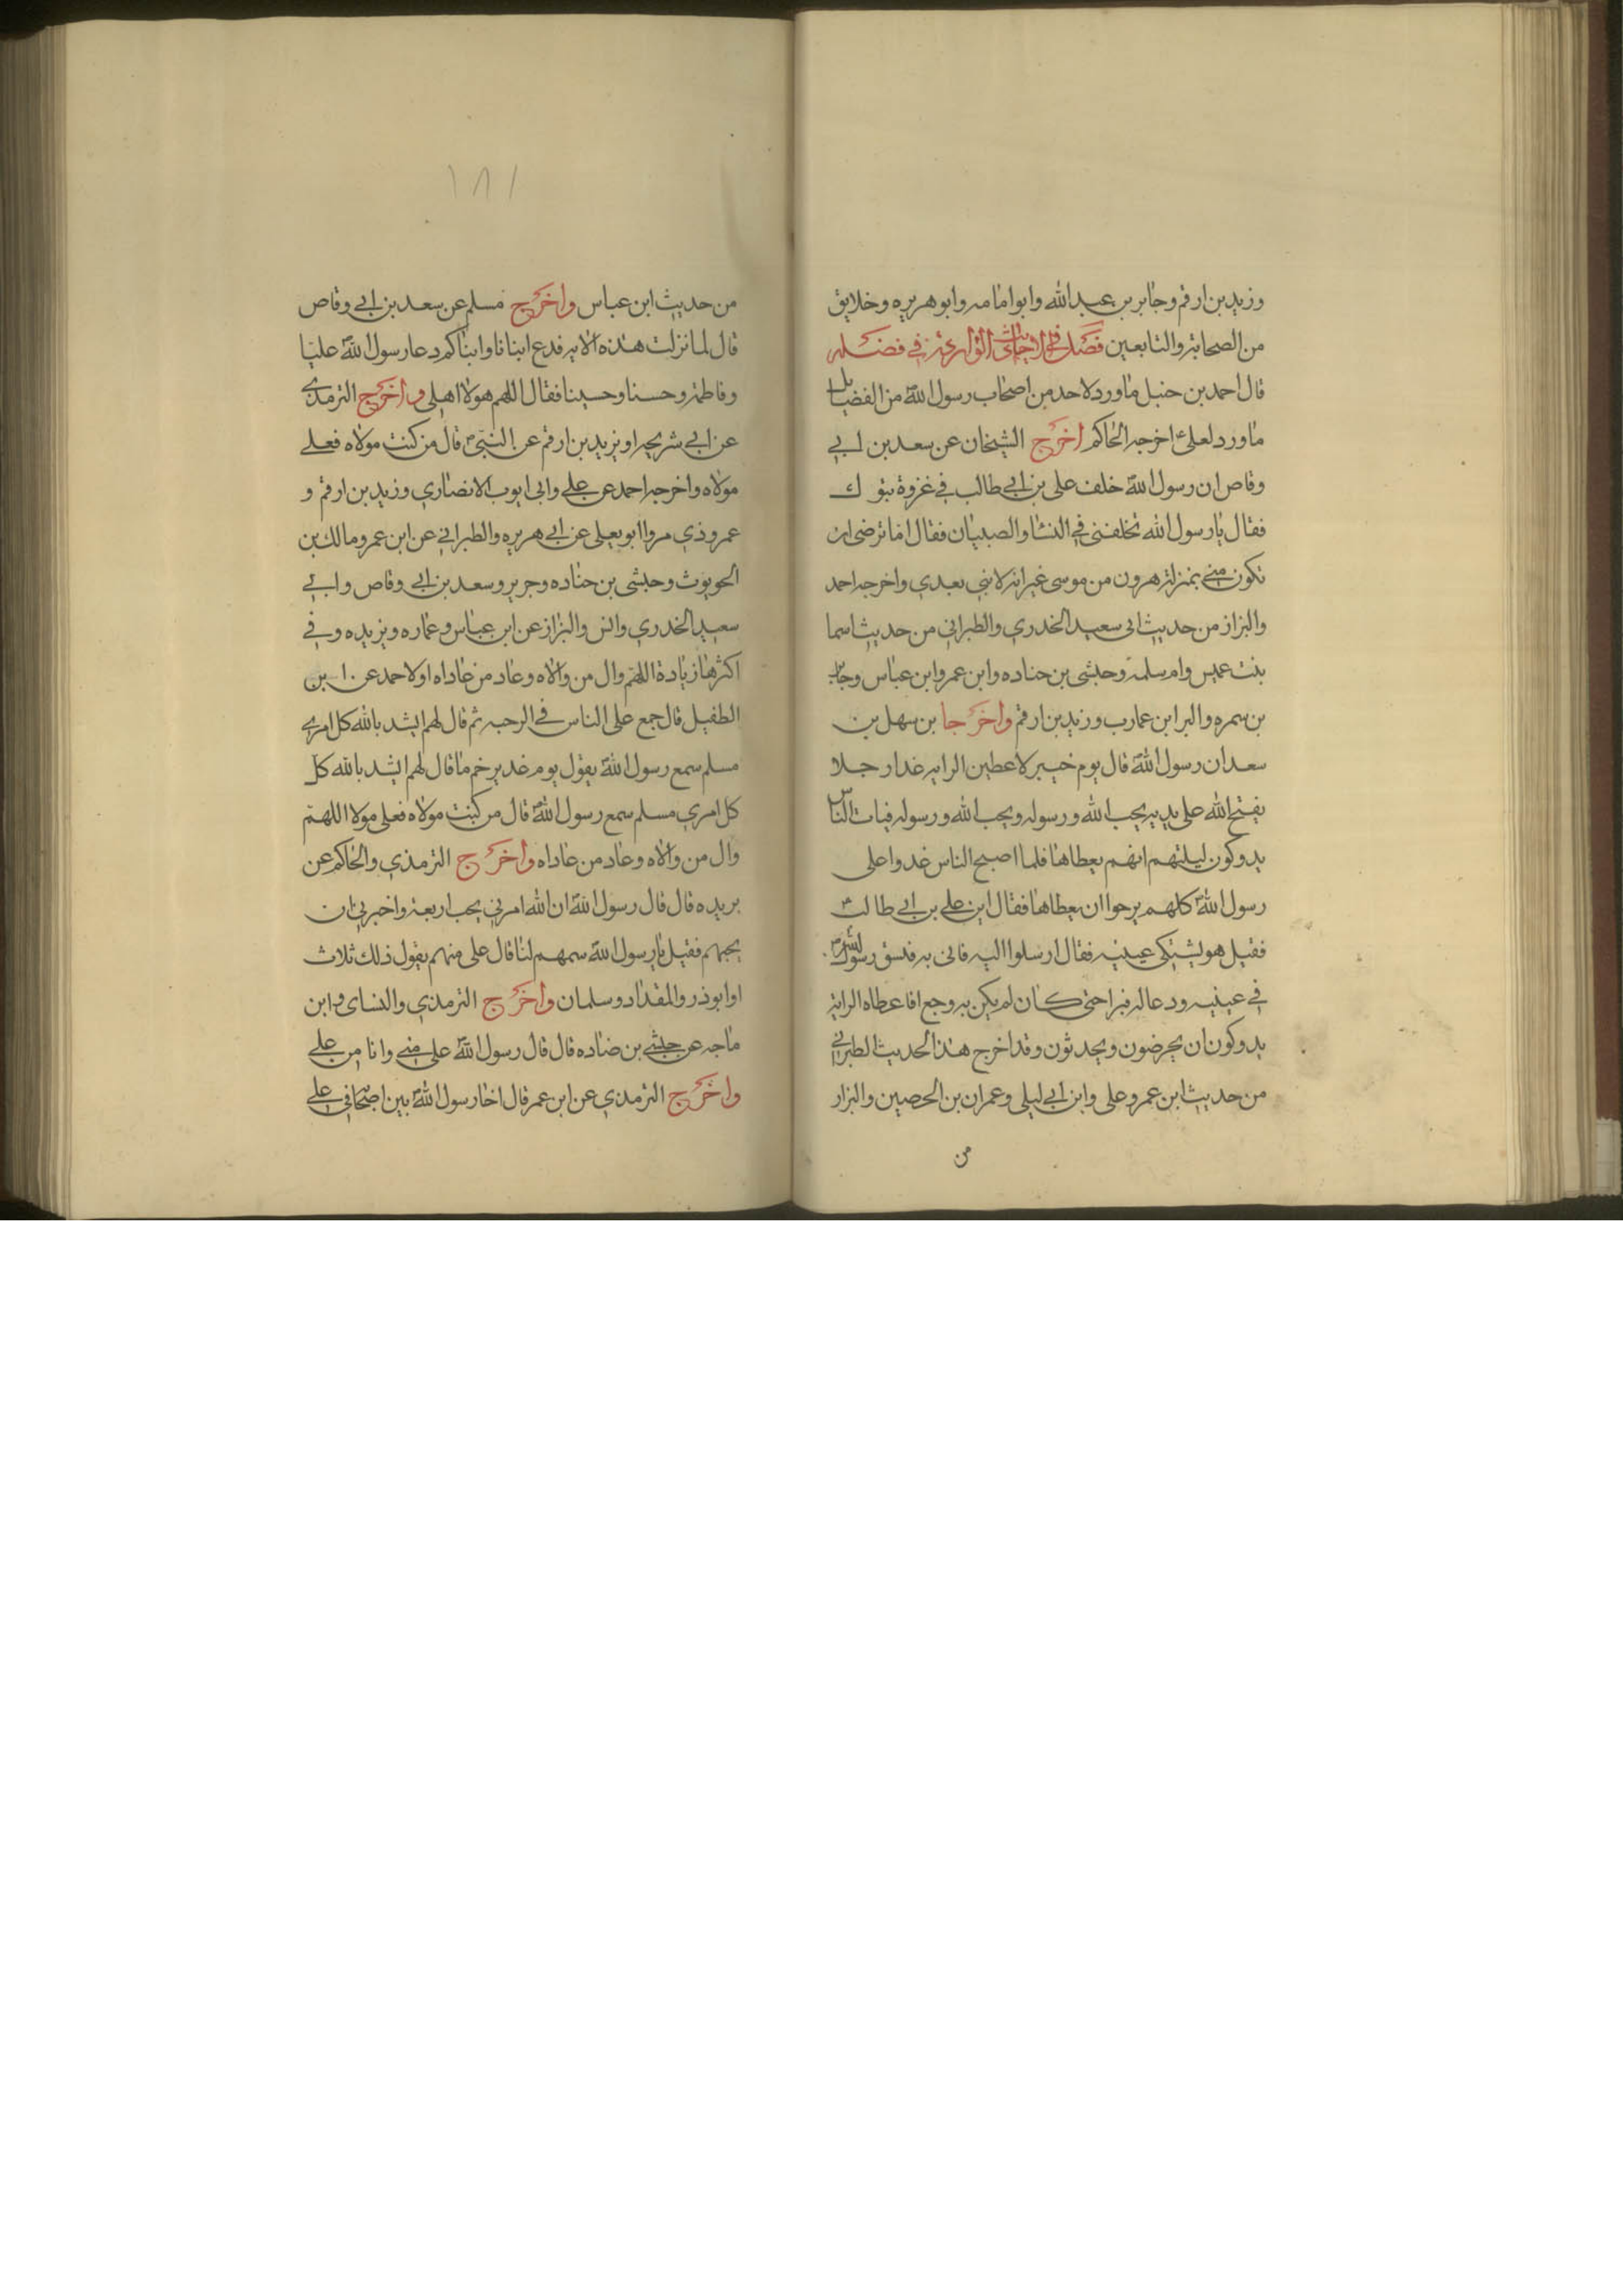 وزيد بن ارقم وجابر بن عبد الله وابو امامه وابو هريره وخلايق
من الصحابة والتابعين فصل في الاحاديث الواردة في فضله
قال احمد بن حنبل ما ورد لاحد من اصحاب رسول الله من الفضايل
ما ورد لعلي اخرجه الحاكم اخرج الشيخان عن سعد بن ابي
وقاص ان رسول الله خلف علي بن ابي طالب في غزوة تبوك
فقال يا رسول الله تخلفني في النسا والصبيان فقال اما ترضى ان
تكون مني بمنزلة هرون من موسى غير انه لا نبي بعدي واخرجه احمد
والبزاز من حديث ابي سعيد الخدري والطبراني من حديث اسما
بنت عميس وام سلمة وحبشى بن جناده وابن عمر وابن عباس وجابر
بن سمره والبرا ابن عازب وزيد بن ارقم واخرجا بن سهل بن
سعد ان رسول الله قال يوم خيبر لاعطين الرايه غدا رجلا
يفتح الله على يديه يحب الله ورسوله ويحب الله ورسوله فبات الناس
يدوكون ليلتهم ايهم يعطاها فلما اصبح الناس غدوا على
رسول الله كلهم يرجوا ان يعطاها فقال اين علي بن ابي طالب
فقيل هو يشتكي عينيه فقال ارسلوا اليه فاتى به فبسق رسول الله
في عينيه ودعا له فبرا حتى كان لم يكن به وجع افاعطاه الراية
يدوكون ان يحرضون ويحدثون وقد اخرج هذا الحديث الطبراني
من حديث ابن عمر وعلى وابن ابي ليلى وعمران بن الحصين والبزار
من
١٨١
من حديث ابن عباس واخرج مسلم عن سعد بن ابي وقاص
قال لما نزلت هذه الايه فدع ابنانا وابناكم دعا رسول الله عليا
وفاطمة وحسنا وحسينا فقال اللهم هولاا اهلي واخرج الترمذي
عن ابي شريحه او يزيد بن ارقم عن النبي قال من كنت مولاه فعلي
مولاه واخرجه احمد عن علي وابى ايوب الانصاري وزيد بن ارقم و
عمرو ذي مر وابو يعلى عن ابي هريره والطبراني عن ابن عمر ومالك بن
الحويرث وحبشى بن جناده وجرير وسعد بن ابي وقاص وابي
سعيد الخدري وانس والبزاز عن ابن عباس وعماره ويزيده وفي
اكثرها زيادة اللهم وال من والاه وعاد من عاداه اولاحمد عن ا بن
الطفيل قال جمع على الناس في الرحبه ثم قال لهم انشد بالله كل امرى
مسلم سمع رسول الله يقول يوم غدير خم ما قال لهم انشد بالله كل
كل امري مسلم سمع رسول الله قال من كنت مولاه فعلى مولا اللهم
وال من والاه وعاد من عاداه واخرج الترمذي والحاكم عن
بريده قال قال رسول الله ان الله امرني بحب اربعة واخبرني ان
يحبهم فقيل يا رسول الله سمهم لنا قال على منهم يقول ذلك ثلاث
اوابوذر والمقداد وسلمان واخرج الترمذي والنساى وابن
ماجه عن حبشي بن ضناده قال قال رسول الله علي مني وانا من علي
واخرج الترمذي عن ابن عمر قال اخا رسول الله بين اصحابه علي